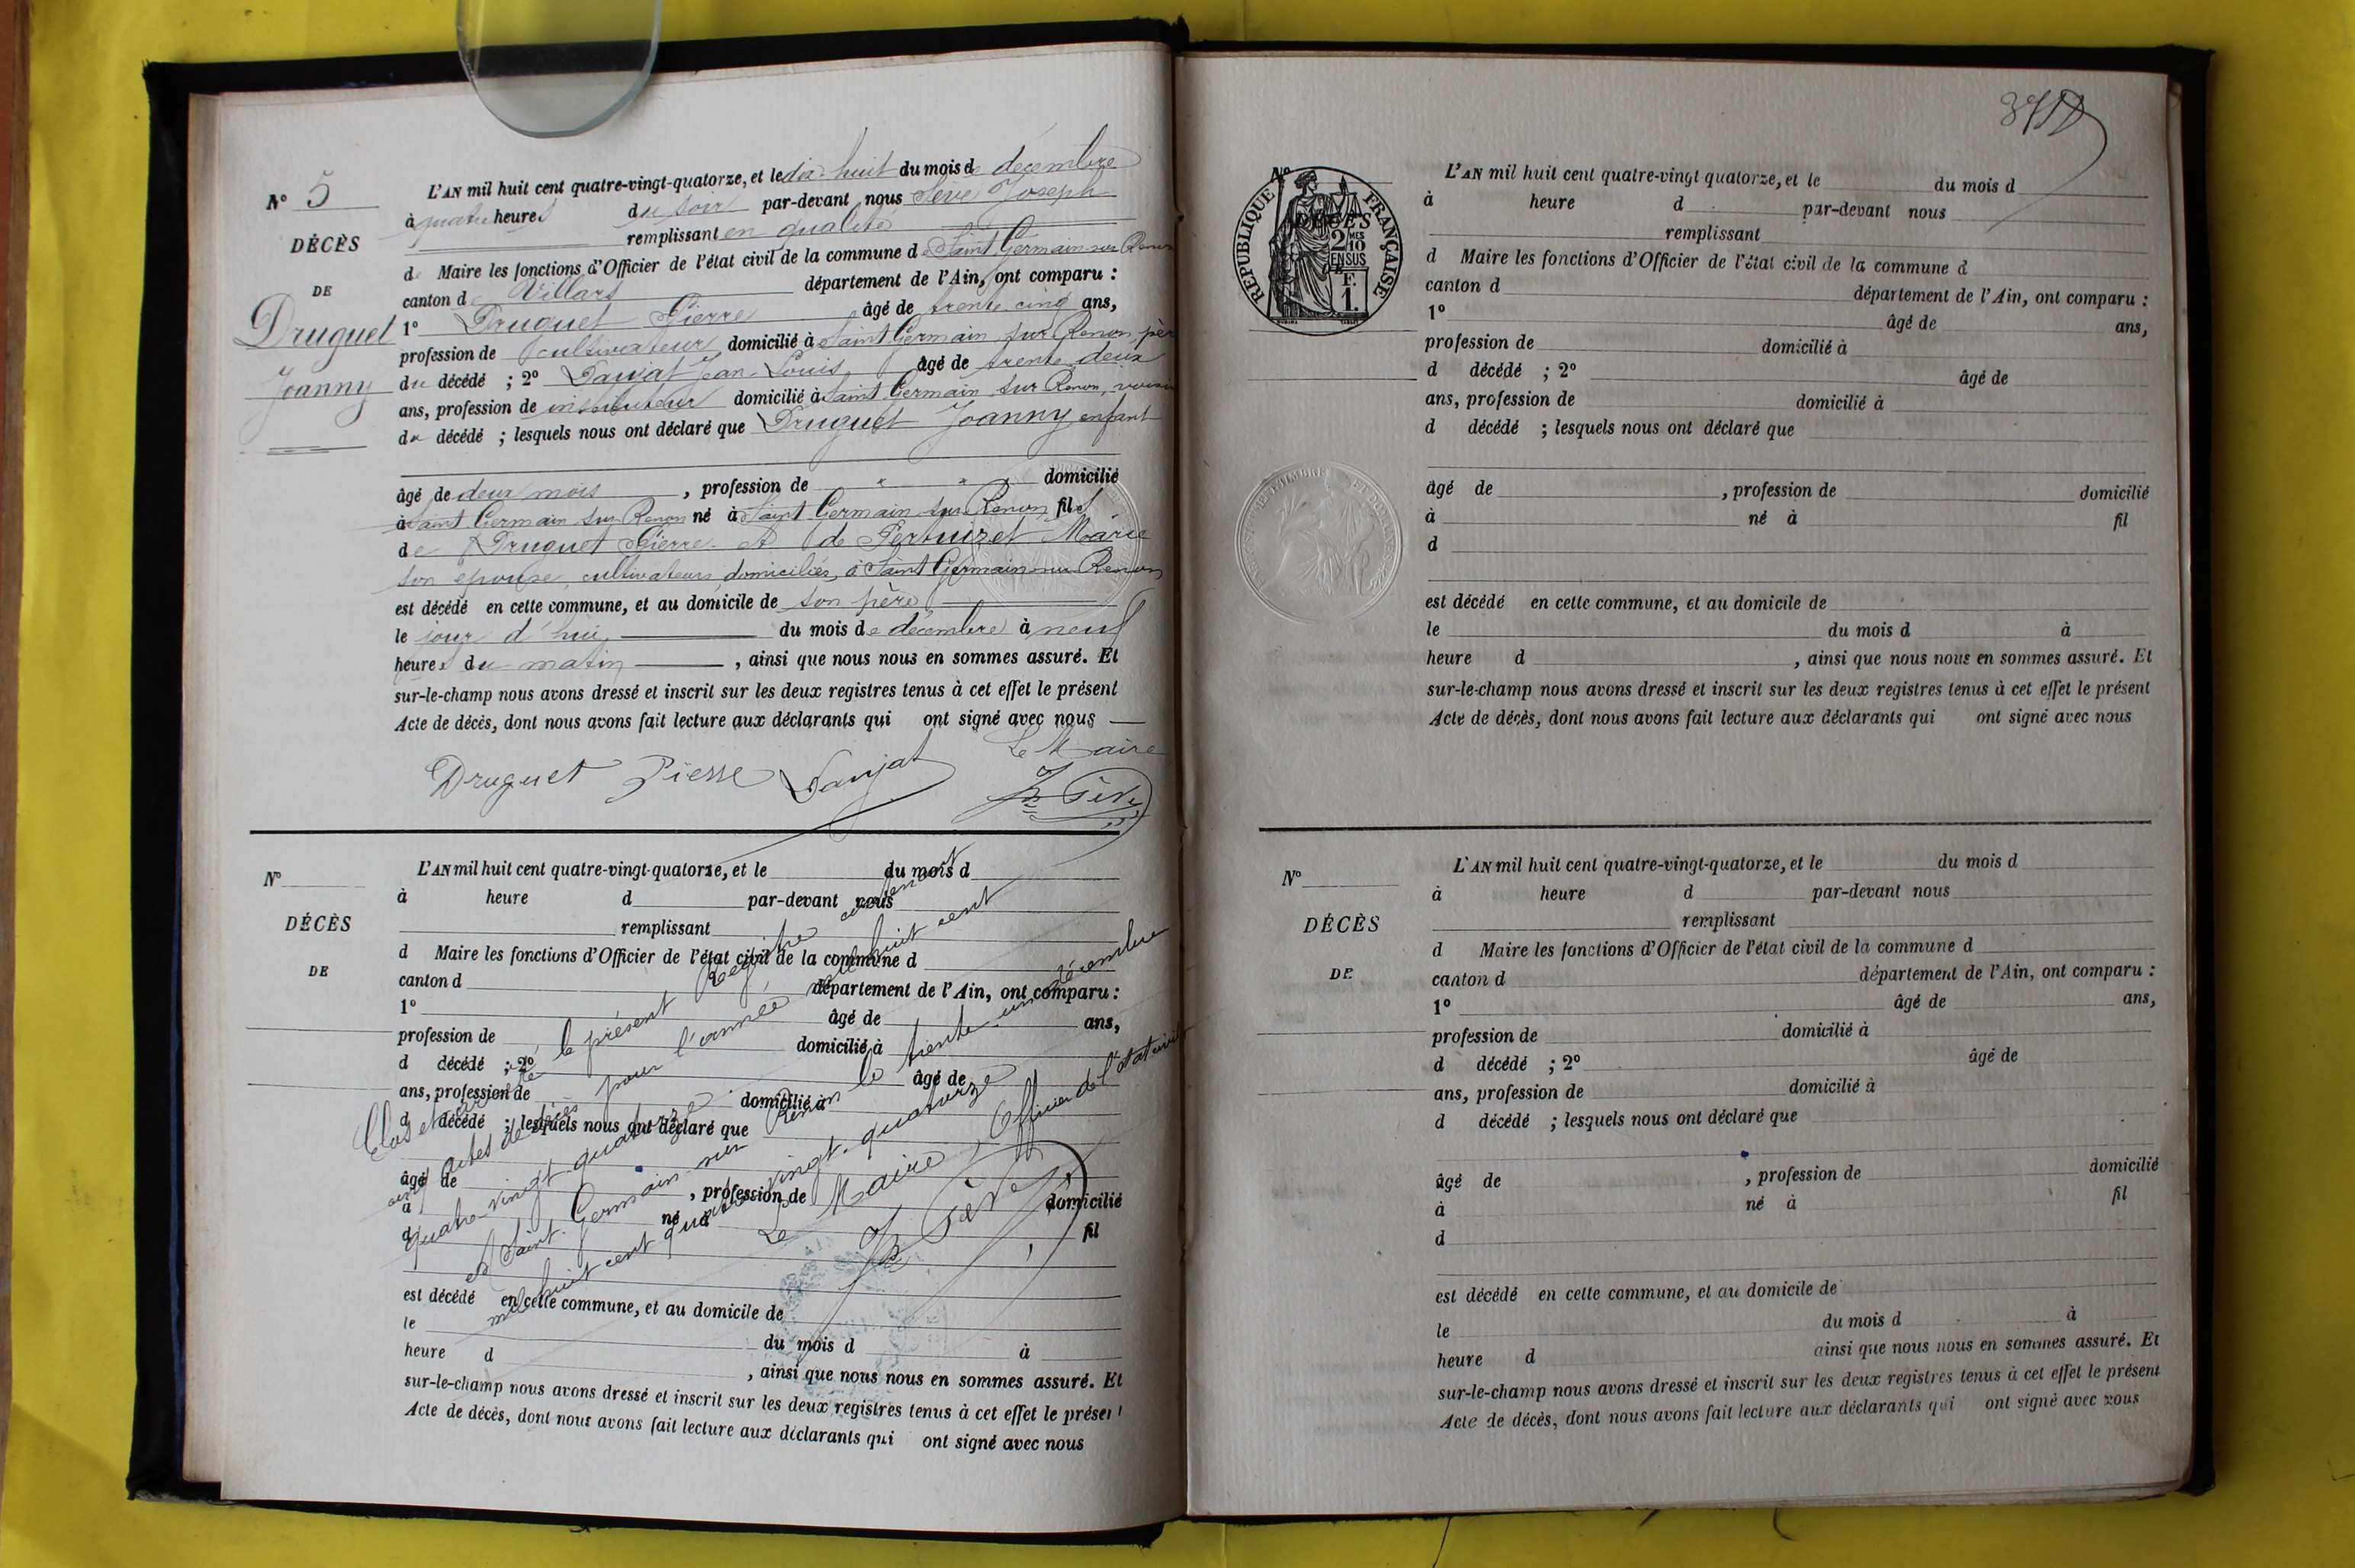 N° 5
DÉCÈS
DE
Druguet
Joanny
L'AN mil huit cent quatre-vingt-quatorze, et le dix-huit du mois de décembre
à quatre heures du soir par-devant nous Sève Joseph
remplissant en qualité
de Maire les fonctions d'Officier de l'état civil de la commune de Saint Germain sur Renon
canton de Villars département de l'Ain, ont comparu :
1° Druguet Pierre âgé de trente cinq ans,
profession de cultivateur domicilié à Saint Germain sur Renon, père
du décédé ; 2° Danjat Jean Louis âgé de trente deux
ans, profession de instituteur domicilié à Saint Germain sur Renon, voisin
du décédé ; lesquels nous ont déclaré que Druguet Joanny enfant
âgé de deux mois , profession de " " , domicilié
à Saint Germain sur Renon né à Saint Germain sur Renon fils
de Druguet Pierre et de Pertuizet Marie
son épouse, cultivateurs domiciliés à Saint Germain sur Renon
est décédé en cette commune, et au domicile de son père
le jour d'hui du mois de décembre à neuf
heures du matin , ainsi que nous nous en sommes assuré. Et
sur-le-champ nous avons dressé et inscrit sur les deux registres tenus à cet effet le présent
Acte de décès, dont nous avons fait lecture aux déclarants qui ont signé avec nous
Le Maire
Druguet Pierre Danjat Sève
N°
DÉCÈS
DE
L'AN mil huit cent quatre-vingt-quatorze, et le du mois d
à heure d par-devant nous
remplissant
d Maire les fonctions d'Officier de l'état civil de la commune d
canton d département de l'Ain, ont comparu :
1° âgé de ans,
profession de domicilié à
d décédé ; 2° âgé de
ans, profession de domicilié à
d décédé ; lesquels nous ont déclaré que
âgé de , profession de domicilié
à né à fil
d
est décédé en cette commune, et au domicile de
le du mois d à
heure d , ainsi que nous nous en sommes assuré. Et
sur-le-champ nous avons dressé et inscrit sur les deux registres tenus à cet effet le présent
Acte de décès, dont nous avons fait lecture aux déclarants qui ont signé avec nous
Clos et arrêté le présent Registre contenant
cinq actes de décès pour l'année mil huit cent
quatre-vingt quatorze
à Saint Germain sur Renon le trente-un décembre
mil huit cent quatre vingt-quatorze
Le Maire, Officier de l'état civil
Sève
N°
RÉPUBLIQUE FRANÇAISE
DÉCÈS
2 MES 10
EN SUS
1 F.
L'AN mil huit cent quatre-vingt quatorze, et le du mois d
à heure d par-devant nous
remplissant
d Maire les fonctions d'Officier de l'état civil de la commune d
canton d département de l'Ain, ont comparu :
1° âgé de ans,
profession de domicilié à
d décédé ; 2° âgé de
ans, profession de domicilié à
d décédé ; lesquels nous ont déclaré que
âgé de , profession de domicilié
à né à fil
d
est décédé en cette commune, et au domicile de
le du mois d à
heure d , ainsi que nous nous en sommes assuré. Et
sur-le-champ nous avons dressé et inscrit sur les deux registres tenus à cet effet le présent
Acte de décès, dont nous avons fait lecture aux déclarants qui ont signé avec nous
N°
DÉCÈS
DE
L'AN mil huit cent quatre-vingt-quatorze, et le du mois d
à heure d par-devant nous
remplissant
d Maire les fonctions d'Officier de l'état civil de la commune d
canton d département de l'Ain, ont comparu :
1° âgé de ans,
profession de domicilié à
d décédé ; 2° âgé de
ans, profession de domicilié à
d décédé ; lesquels nous ont déclaré que
âgé de , profession de domicilié
à né à fil
d
est décédé en cette commune, et au domicile de
le du mois d à
heure d ainsi que nous nous en sommes assuré. Et
sur-le-champ nous avons dressé et inscrit sur les deux registres tenus à cet effet le présent
Acte de décès, dont nous avons fait lecture aux déclarants qui ont signé avec nous